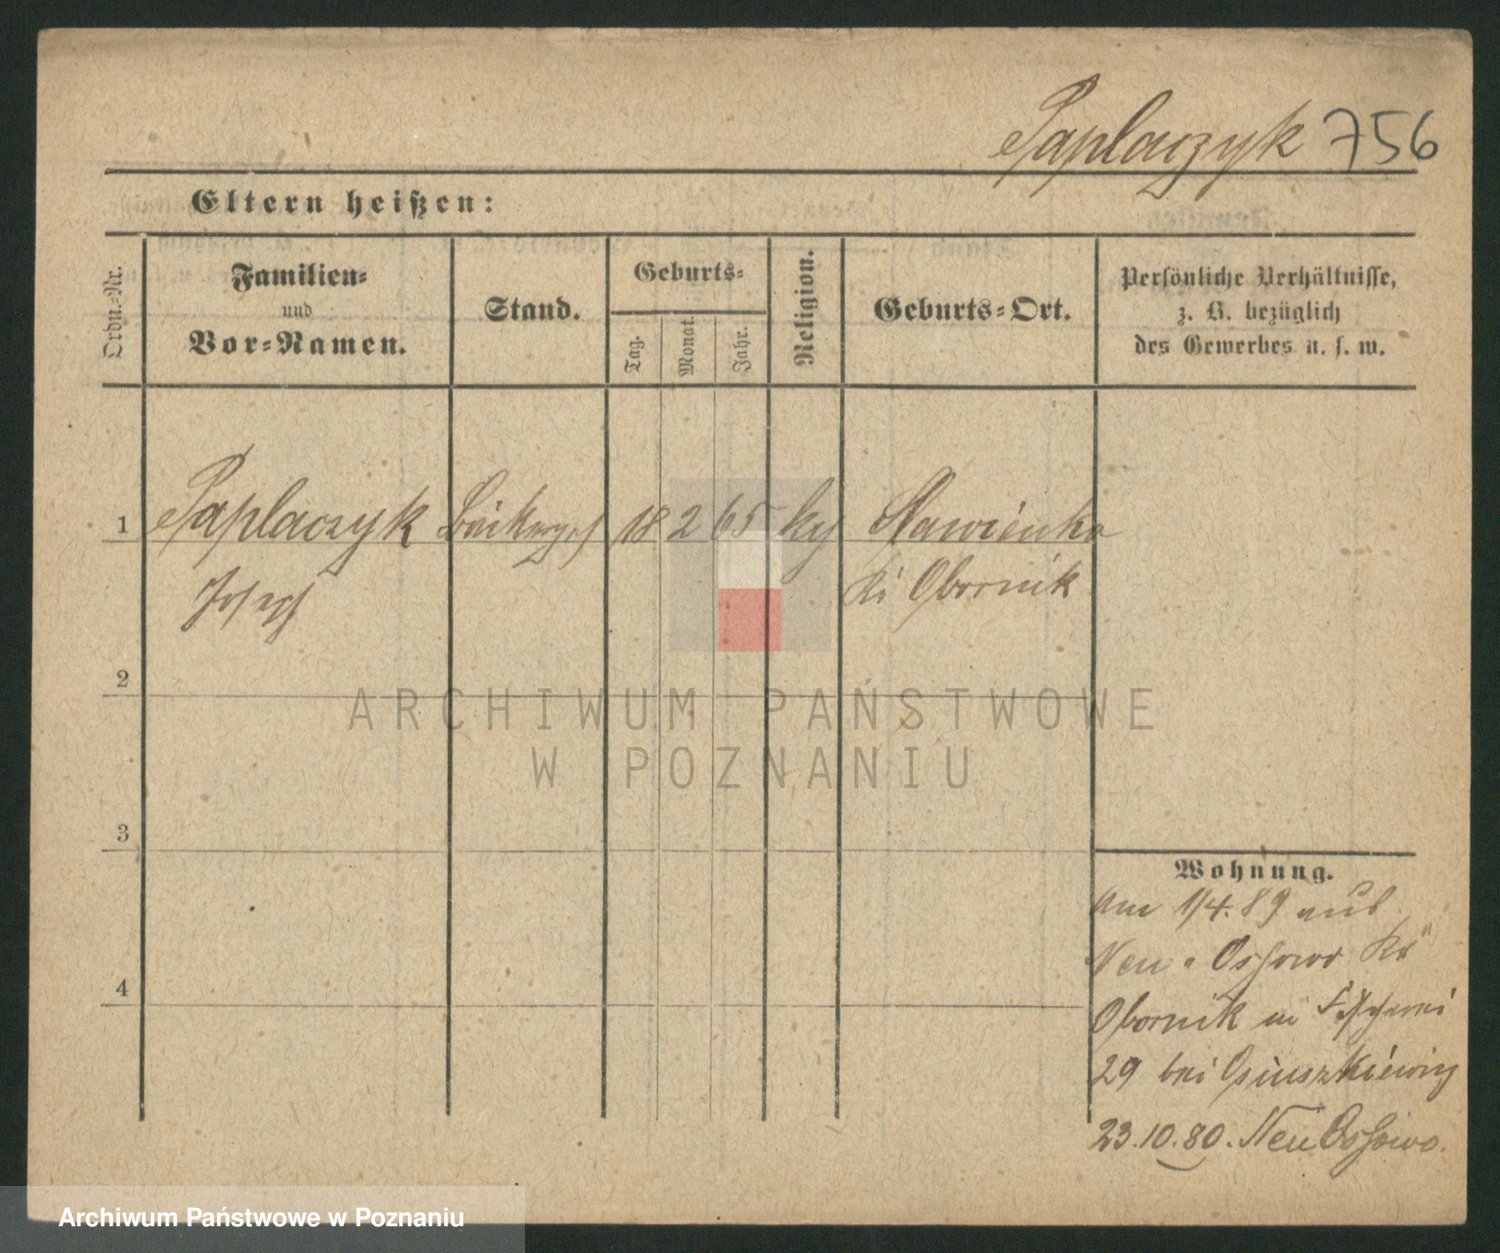 Paplaczyk 756
Eltern heißen:
Ordn.-Nr.
Familien-
und
Vor-Namen.
Stand.
Geburts-
Tag.
Monat.
Jahr.
Religion.
Geburts-Ort.
Persönliche Verhältnisse,
z. B. bezüglich
des Gewerbes u. s. w.
1 Paplaczyk 18 2 65 Slawienko
Josef Kr Obornik
2
3
4
Wohnung.
Am 1/4.89 aus
Neu-Ossowo Kr
Obornik in Fischerei
29 bei
23.10.80. Neu Ossowo.
ARCHIWUM PAŃSTWOWE
W POZNANIU
Archiwum Państwowe w Poznaniu